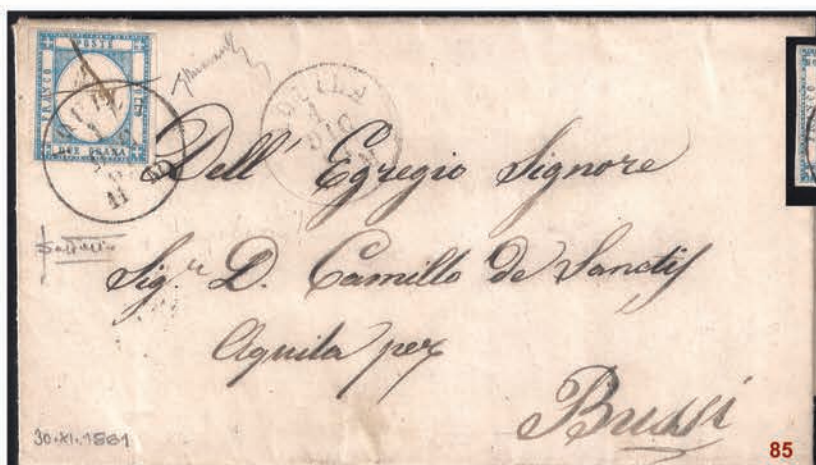 POSTE
FRANCO
BOLLO
DUE GRANA
AQUILA
1
DIC
Dell' Egregio Signore
Sig.r D. Camillo de Sanctis
Aquila per
Bussi
30.XI.1861
85